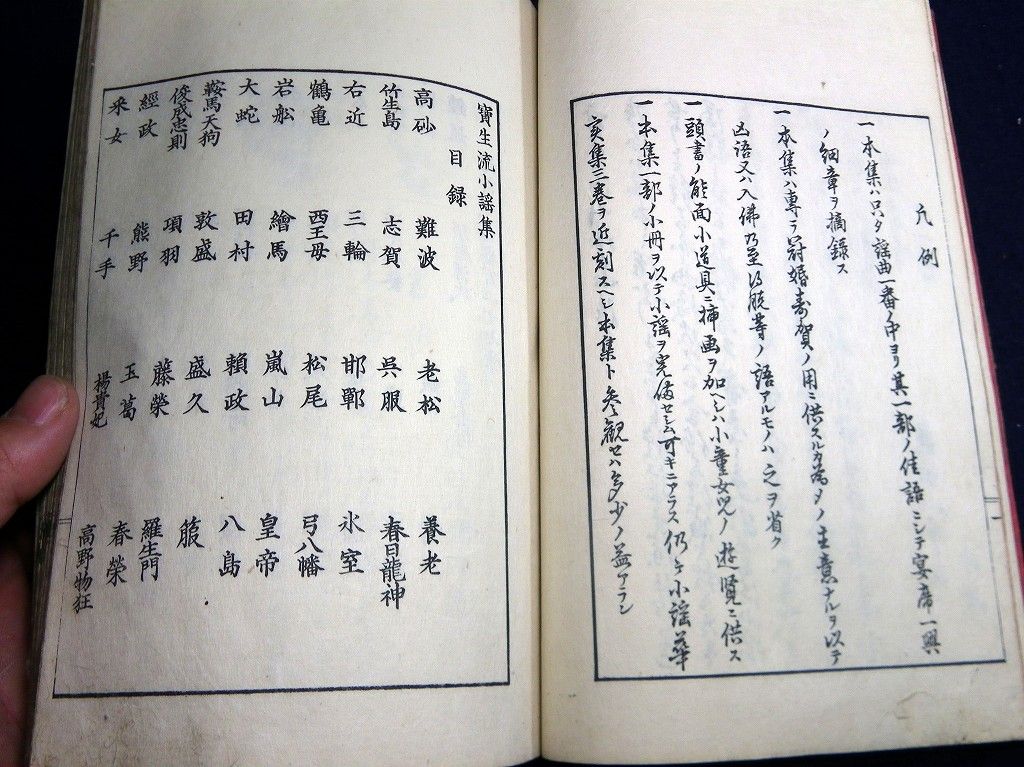 凡例
一本集ハ只タ謡曲一番ノ中ヨリ其一部ノ佳語ニシテ宴席一興
ノ細章ヲ摘録ス
一本集ハ専ラ冠婚寿賀ノ用ニ供スルカ為タノ主意ナルヲ以テ
凶語又ハ入佛乃至得脱等ノ語アルモノハ之ヲ省ク
一頭書ノ能面小道具ニ挿画ヲ加ヘシハ小童女児ノ遊覧ニ供ス
一本集一部ノ小冊ヲ以テ小謡ヲ完備セシム可キニアラス仍テ小謡華
亥集三巻ヲ近刻スヘシ本集ト参観セハ多少ノ益アラン
一
寶生流小謡集
目録
高砂 難波 老松 養老
竹生島 志賀 呉服 春日龍神
右近 三輪 邯鄲 氷室
鶴亀 西王母 松尾 弓八幡
岩船 繪馬 嵐山 皇帝
大蛇 田村 頼政 八島
鞍馬天狗 敦盛 盛久 箙
俊成忠則 項羽 藤榮 羅生門
經政 熊野 玉葛 春榮
采女 千手 楊貴妃 高野物狂